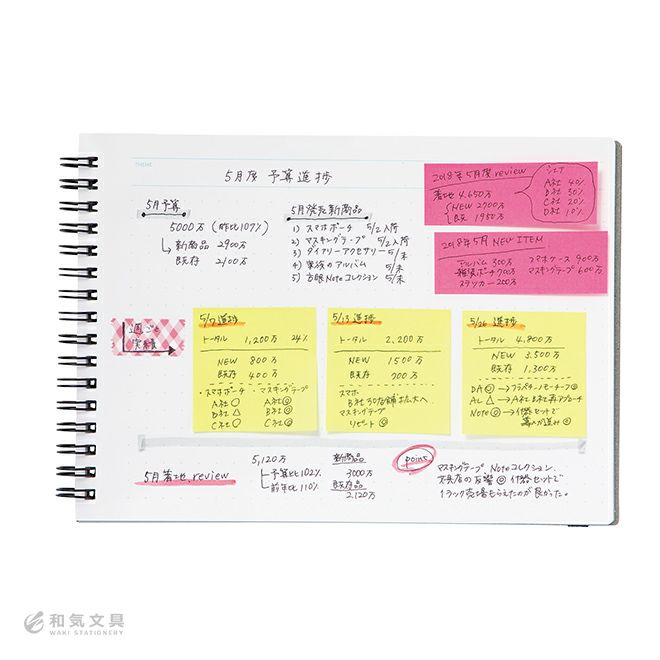 THEME
5月度 予算進捗
5月予算
5000万 (昨比107%)
新商品 2900万
既存 2100万
5月発売新商品
1) スマホポーチ 5/2入荷
2) マスキングテープ 5/2入荷
3) ダイアリーアクセサリー 5/末
4) 家族のアルバム 5/末
5) 方眼Noteコレクション 5/末
2018年5月度 review
着地 4,650万
NEW 2700万
既 1950万
シェア
A社 40%
B社 30%
C社 20%
D社 10%
2018年5月 NEW ITEM
アルバム 300万 スマホケース 900万
雑貨ポーチ 700万 マスキングテープ 600万
ステッカー 200万
週ごと
実績
5/7 進捗
トータル 1,200万 24%
NEW 800万
既存 400万
・スマホポーチ ・マスキングテープ
A社○ A社◎
B社△ B社◎
C社○ C社◎
5/13 進捗
トータル 2,200万
NEW 1500万
既存 700万
スマホ
B社 50店舗拡大へ
マスキングテープ
リピート◎
5/26 進捗
トータル 4,800万
NEW 3,500万
既存 1,300万
DA◎→フラペチーノモチーフ◎
AL△→A社B社再アプローチ
Note◎→付箋セットで
導入が進み◎
5月着地review
5,120万
予算比102%
前年比110%
新商品
3000万
既存品
2,120万
point
マスキングテープ、Noteコレクション
文具店の反響◎ 付箋セットで
1ラック売場もらえたのが良かった。
和気文具
WAKI STATIONERY